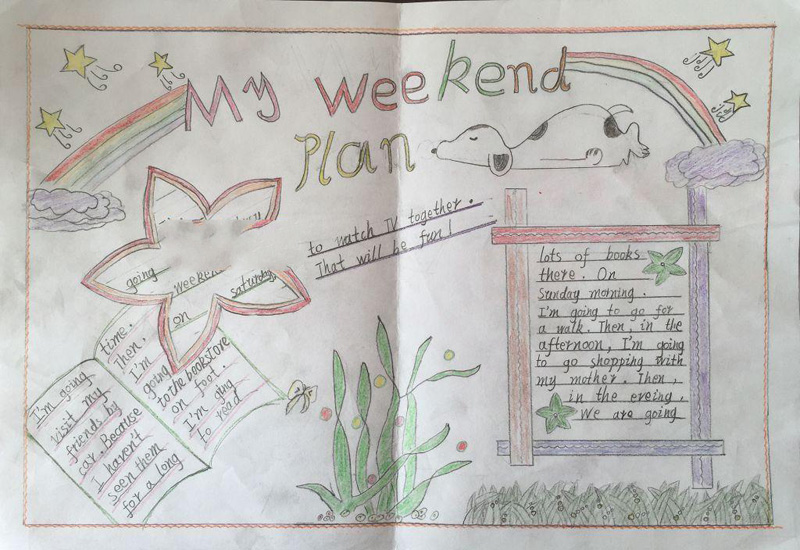 My weekend
Plan
going weekend
on saturday
I'm going
visit my
friends by
car. Because
I haven't
seen them
for a long
time.
Then.
I'm
going
to the bookstore
on foot.
I'm ging
to read
lots of books
there. On
Sunday morning.
I'm going to go for
a walk. Then, in the
afternoon, I'm going
to go shopping with
my mother. Then,
in the eveing.
We are going
to watch TV together.
That will be fun!